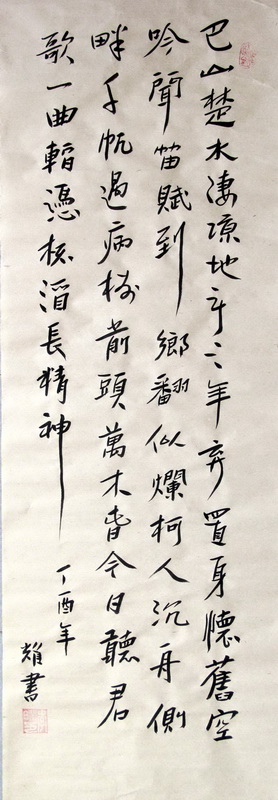 巴山楚水淒涼地二十三年弃置身懷舊空
吟聞笛賦到鄉翻似爛柯人沉舟側
畔千帆過病樹前頭萬木春今日聽君
歌一曲暫憑杯酒長精神
丁酉年
雄書